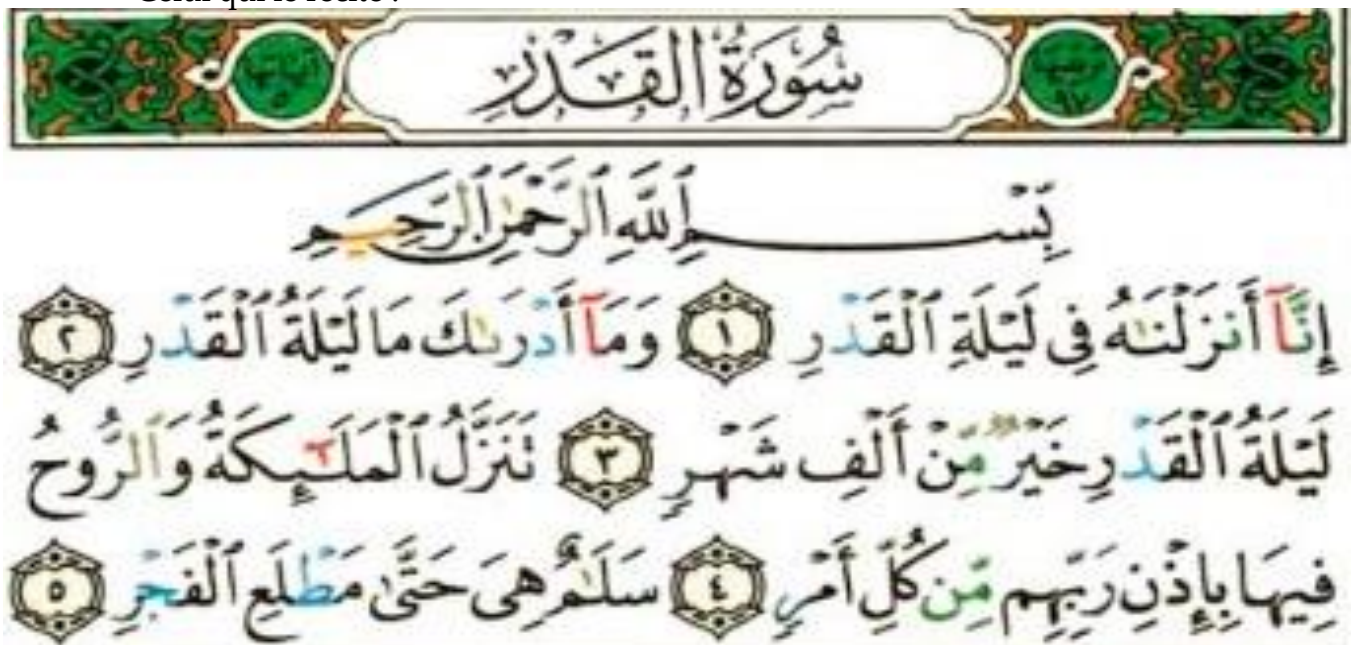 Celui qui le récite :
سُورَةُ الْقَدْرِ
بِسْمِ ٱللَّهِ ٱلرَّحْمَٰنِ ٱلرَّحِيمِ
إِنَّآ أَنزَلْنَٰهُ فِى لَيْلَةِ ٱلْقَدْرِ ١ وَمَآ أَدْرَىٰكَ مَا لَيْلَةُ ٱلْقَدْرِ ٢
لَيْلَةُ ٱلْقَدْرِ خَيْرٌ مِّنْ أَلْفِ شَهْرٍ ٣ تَنَزَّلُ ٱلْمَلَٰٓئِكَةُ وَٱلرُّوحُ
فِيهَا بِإِذْنِ رَبِّهِم مِّن كُلِّ أَمْرٍ ٤ سَلَٰمٌ هِىَ حَتَّىٰ مَطْلَعِ ٱلْفَجْرِ ٥